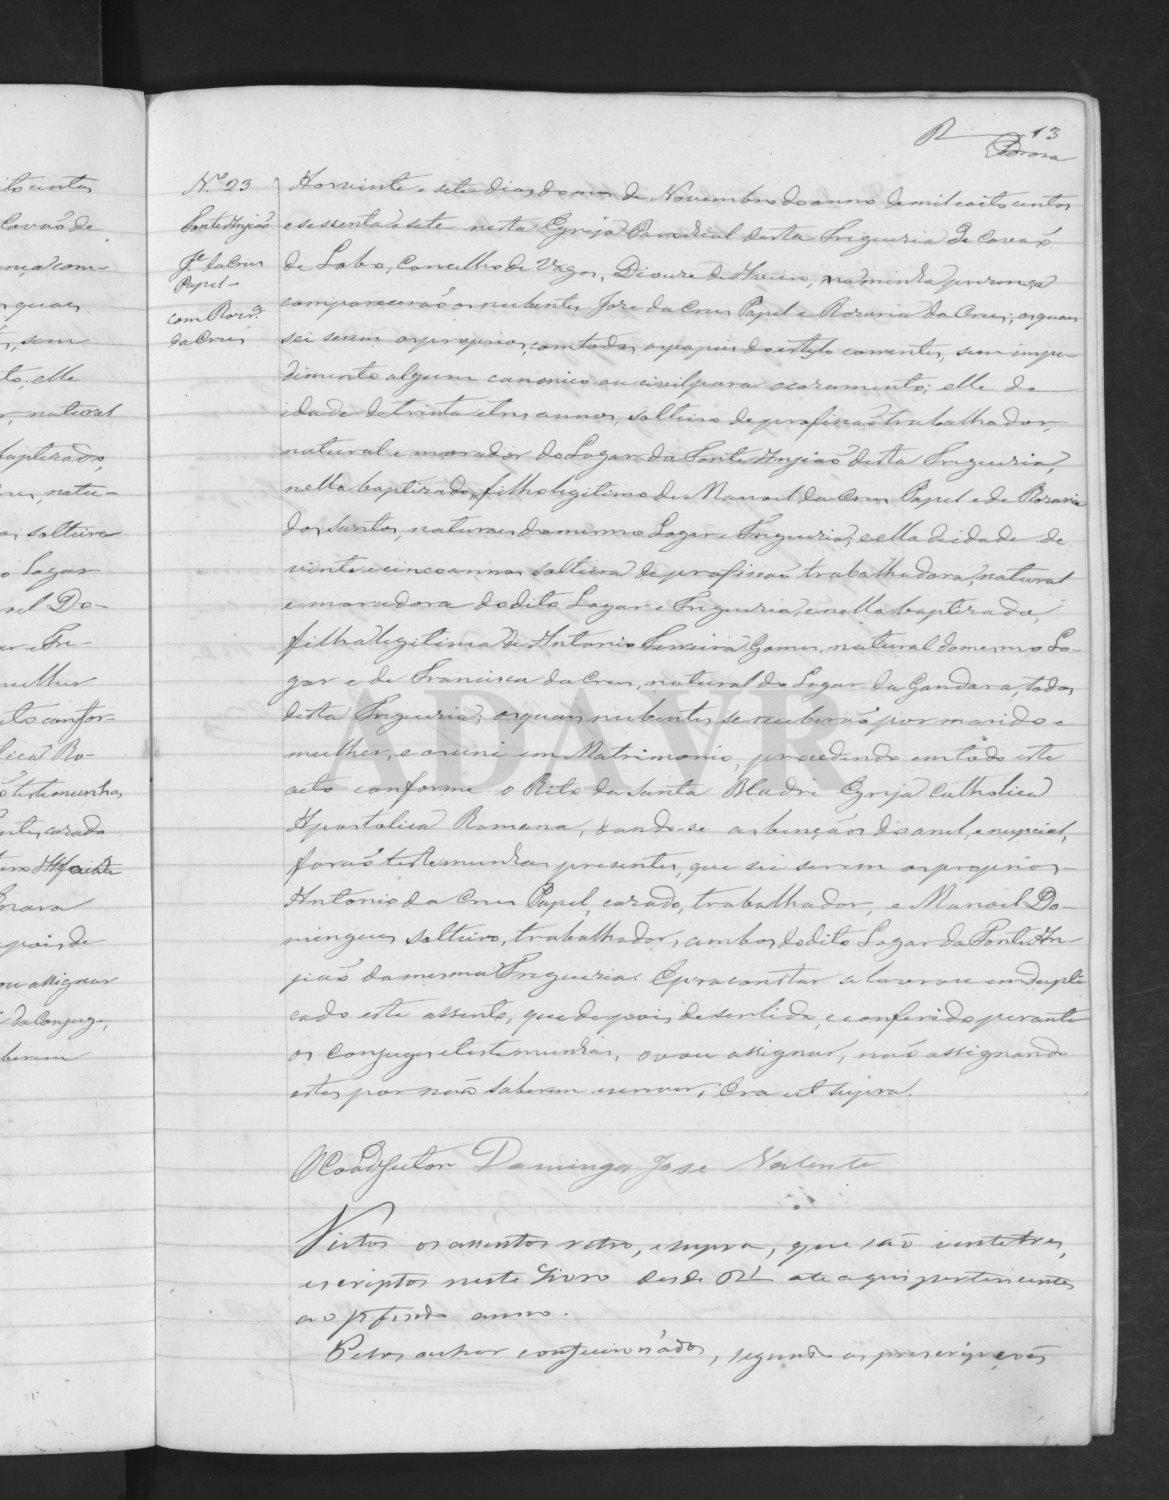 13
N.º 23
Aos vinte e sete dias do mes de Novembro do anno de mil e oito centos
Fonte Anjiaõ
e sessenta e sete nesta Egreja Parochial desta Freguezia de Covaõ
de Lobo, Concelho de Vagos, Diocese de Aveiro, na minha presença
Jé. da Cruz
Papel
compareceraõ os nubentes Joze da Cruz Papel e Rozaria da Cruz, os quaes
com Rozrª
da Cruz
sei serem os proprios, com todos os papeis do estylo correntes, sem impe-
dimento algum canonico ou civil para o cazamento; elle de
idade de trinta e tres annos, solteiro de profissaõ trabalhador,
natural e morador do Lugar da Fonte Anjiaõ desta Freguezia,
nella baptizado, filho legitimo de Manoel da Cruz Papel e de Rozaria
dos Santos, naturaes do mesmo Lugar e Freguezia; e ella de idade de
vinte e cinco annos solteira de profissaõ trabalhadora, natural
e moradora do dito Lugar e Freguezia, e nella baptizada,
filha legitima de Antonio Ferreira Gomes, natural do mesmo Lu-
gar e de Francisca da Cruz, natural do Lugar da Gandara, todos
desta Freguezia; os quaes nubentes se receberaõ por marido e
mulher, e os uni em Matrimonio, procedendo em todo este
acto conforme o Rito da Santa Madre Egreja Catholica
Apostolica Romana, dando-se as bençãos do anel, e nupcial,
foraõ testemunhas presentes, que sei serem os proprios
Antonio da Cruz Papel, cazado, trabalhador, e Manoel Do-
mingues solteiro, trabalhador, ambos do dito Lugar da Fonte An-
jiaõ da mesma Freguezia. E para constar se lavrou em dupli
cado este assento, que depois de ser lido, e conferido perante
os conjuges e testemunhas, o vou assignar, naõ assignando
estes por naõ saberem escrever, Era ut supra.
O Coadjutor Domingos Jose Valente
Vistos os assentos retro, e supra, que saõ vinte tres,
escriptos neste Livro desde até aqui pertencentes
ao anno.
, segundo as prescripçoens
ADAVR